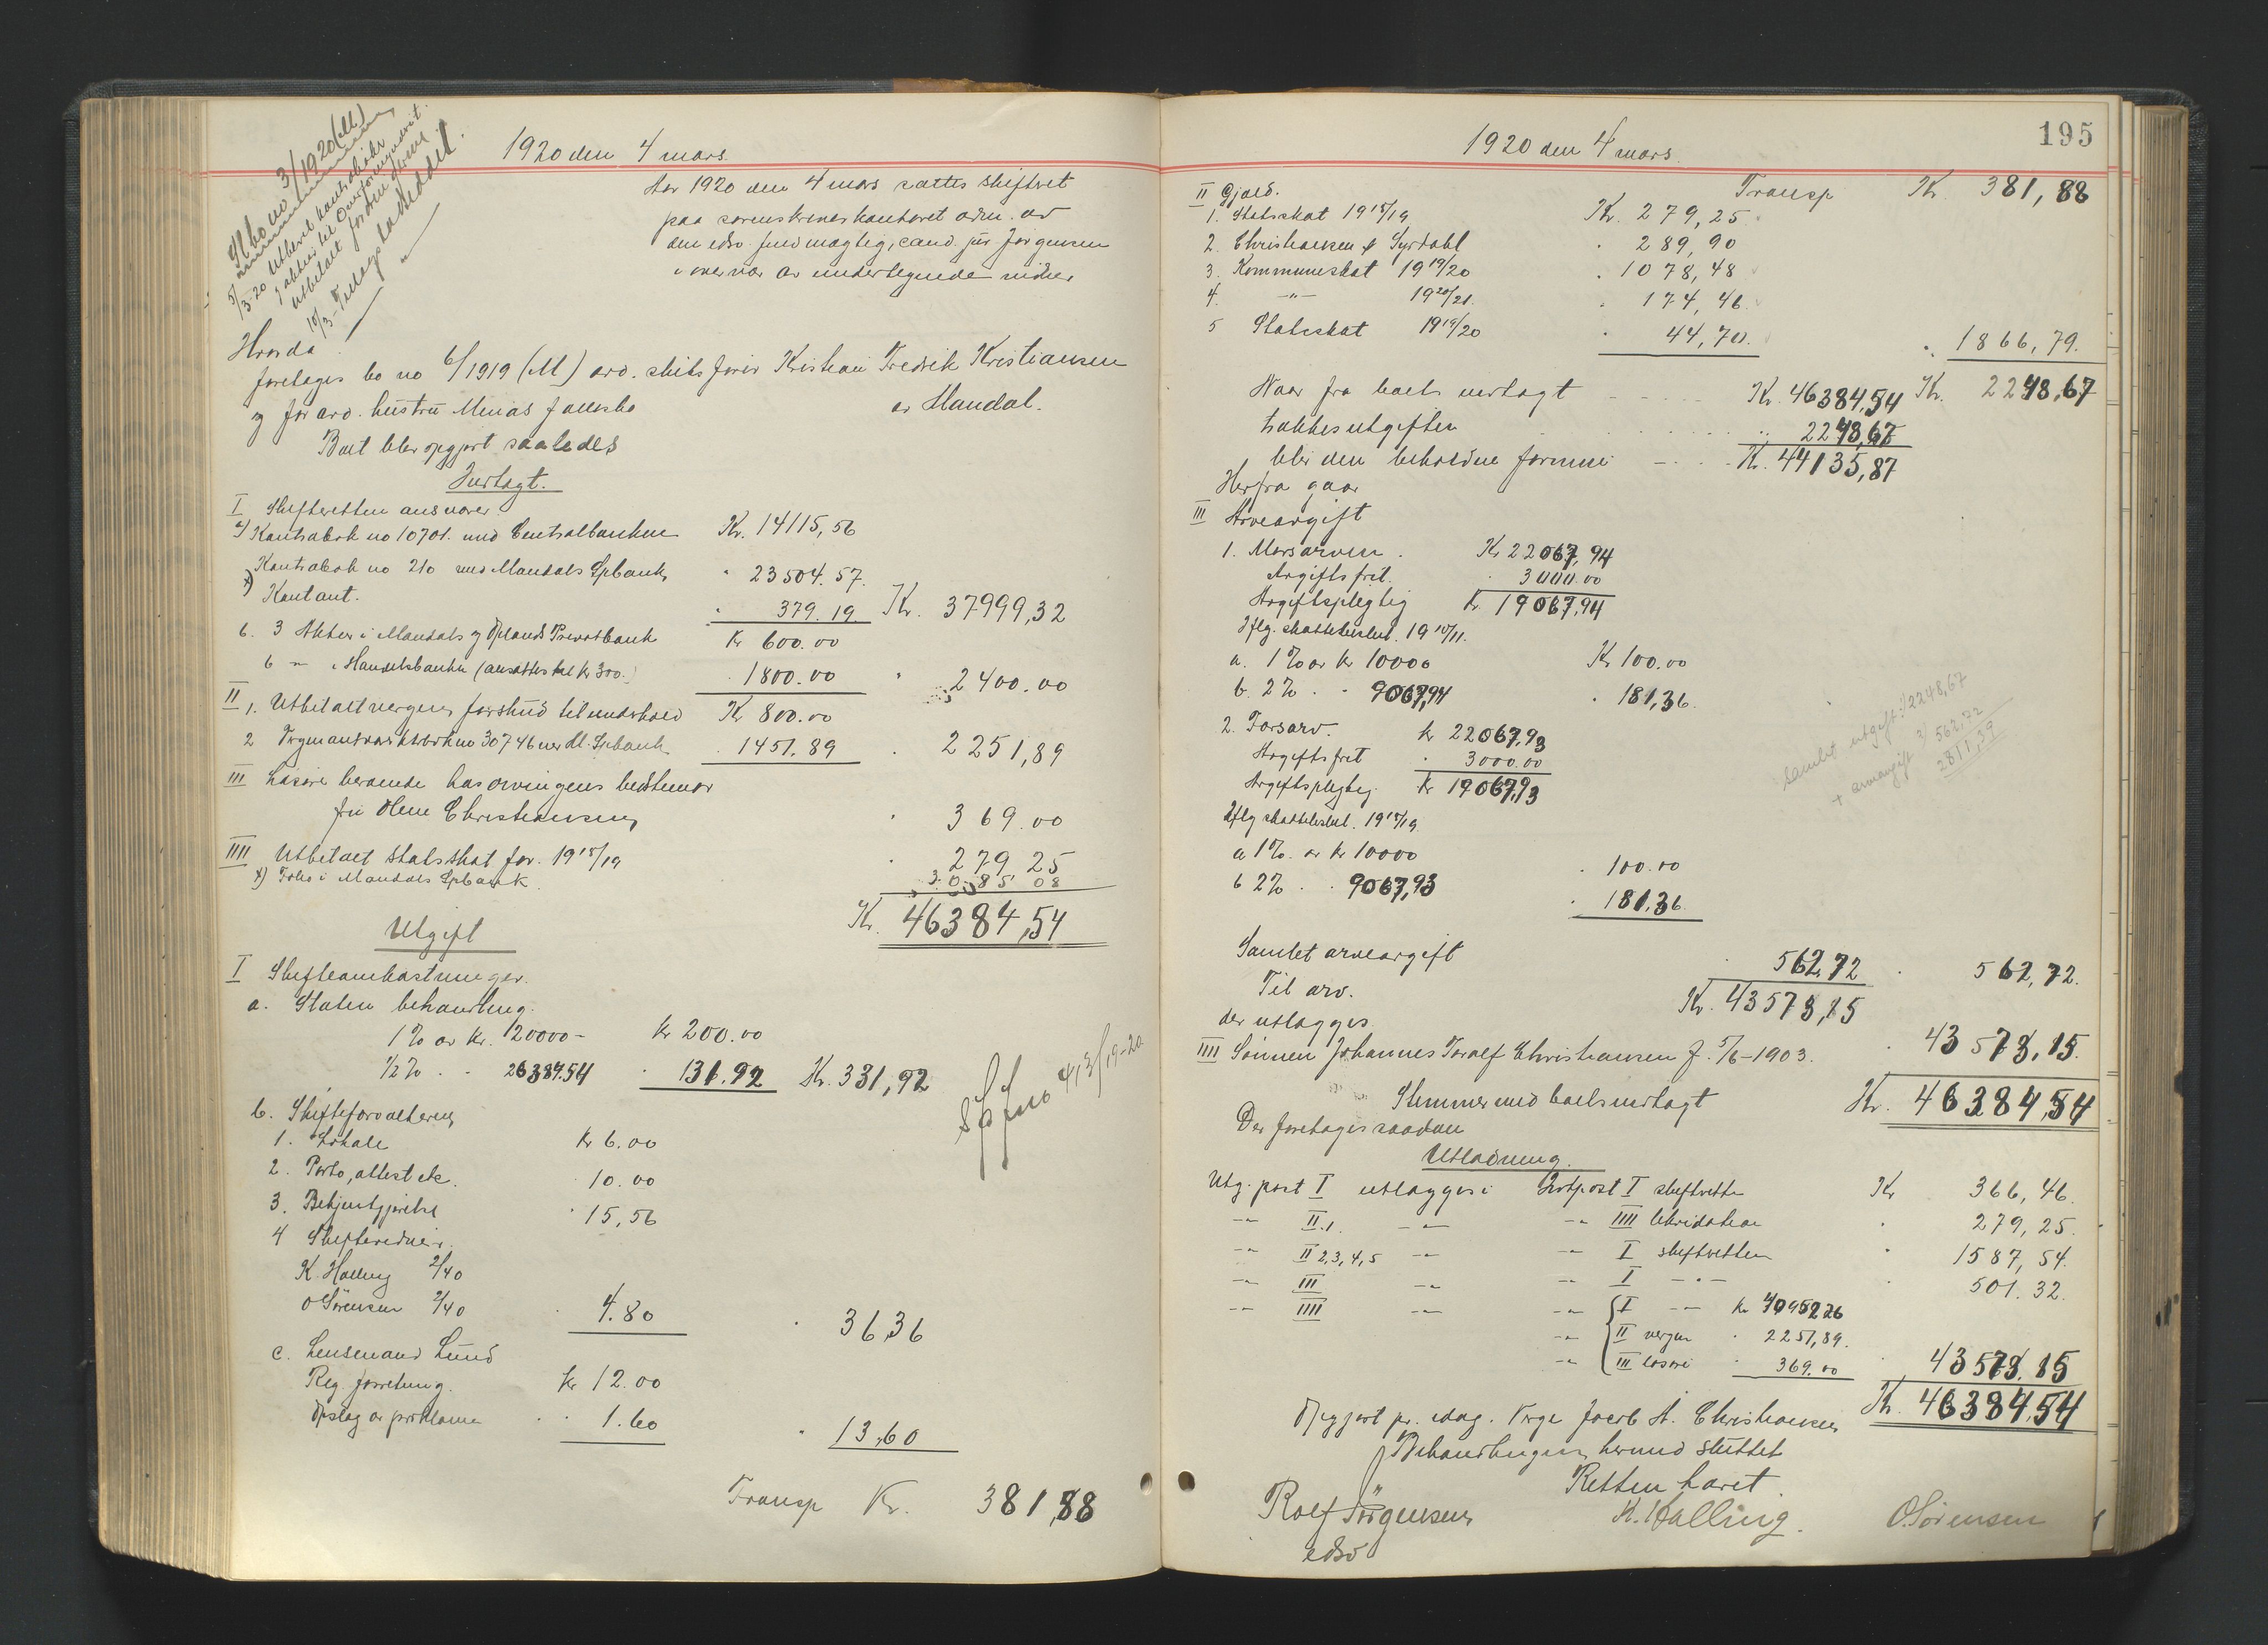 1920 den 4 mars.
Bo no 3/1920 (M)
Aar 1920 den 4 mars sattes skifteret
paa sorenskriverkontoret adm. av
den edsv. fuldmægtig, cand. jur Jørgensen
i overvær av undertegnede vidner
Hvorda
foretages bo no 6/1919 (M) avd. skibsfører Kristian Fredrik Kristiansen
og før avd. hustru Minas fællesbo av Mandal.
Boet blev opgjort saaledes
Indtægt.
I Skifteretten ansvarer
a) Kontrabok no 10701. med Centralbanken Kr. 14115,56
Kontrabok no 210 med Mandals Spbank " 23504.57.
x) Kontant. " 379.19 Kr. 37999,32
b. 3 Aktier i Mandals og Oplands Privatbank Kr 600.00
6 — i Handelsbanken (ansattes til kr 300.) 1800.00 " 2400.00
II 1. Utbetalt vergens forskud til underhold Kr 800.00
2 Vergemaals bok no 30746 ved M. Spbank 1451.89 . 2251,89
III Løsøre beroende hos arvingens bedstemor
fru Oline Christiansen 369.00
IIII Utbetalt statsskat for 1918/19 279 25
x) Folio i Mandals Spbank. 3085 08
Kr. 46384,54
Utgift
I Skifteomkostninger.
a. Staten behandling.
1% av Kr. 20000- Kr 200.00
1/2% . - 26384.54 . 131.92 Kr. 331,92
b. Skifteforvalteren
1. Lokale Kr 6.00
2. Porto, attest etc. . 10.00
3. Bekjentgjørelse . 15,56
4 Skiftevidner.
K. Halling 2/40
O Sörensen 2/40 . 4.80 . 36,36
c. Lensmand Lund
Reg. forretning. Kr 12.00
Opslag av proklama . . 1.60 . 13,60
Transp Kr. 381,88
195
1920 den 4 mars.
Transp Kr. 381,88
II Gjæld.
1. Statsskat 1918/19 Kr. 279,25
2. Christiansen & Syrdahl . 289,90
3. Kommuneskat 1919/20 . 1078,48
4. -"- 1920/21. . 174,46
5 Statsskat 1919/20 . 44,70. . 1866,79.
Kr. 2248,67
Naar fra boets indtægt Kr. 46384,54
trækkes utgiften 2248,67
blir den beholdne formue Kr. 44135,87
Herfra gaar
III Arveavgift
1. Morsarven. Kr 22067,94
Avgiftsfrit. . 3000.00
Avgiftspligtig Kr 19067,94
Iflg. skattebeslut. 1910/11.
a. 1% av kr 10000 Kr 100.00
b. 2% . . 9067,94 . 181,36.
2. Farsarv. Kr 22067,93
Avgiftsfrit . 3000.00
Avgiftspligtig Kr 19067,93
Iflg skattebeslut. 1918/19
a 1%. av kr 10000 . 100.00
b 2% . . 9067,93 . 181.36
Samlet utgift: 2248,67
+ arveavgift 562,72
2811,39
Samlet arveavgift 562,72 . 562,72.
Til arv. Kr. 43573,15
der utlægges
IIII Sønnen Johannes Toralf Christiansen f. 5/6-1903. . 43573,15.
Stemmer med boets indtægt Kr. 46384,54
Der foretages saadan
Utlodning.
Utg. post I utlægges i Indtpost I skifteretten Kr 366,46.
-"- II.1. -"- -"- IIII likvidation . 279,25.
-"- II 2,3,4,5 -"- -"- I skifteretten . 1587,54.
-"- III -"- -"- I -"- . 501.32.
-"- IIII -"- -"- I -"- Kr 40952.26
-"- II vergen . 2251,89.
-"- III løsøre . 369.00 . 43573.15
Kr. 46384,54
Opgjort pr. idag. Verge Jacob A. Christiansen
Behandlingen hermed sluttet
Retten hævet.
Rolf Jörgensen K. Halling. O. Sörensen
edsv